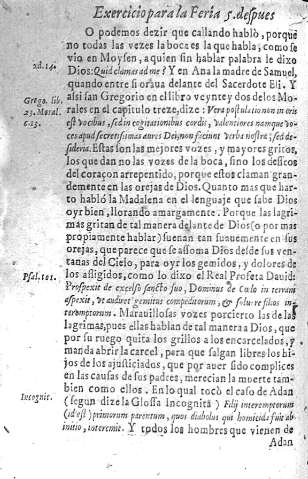 Exercicio para la Feria 5. despues
O podemos dezir que callando habló, porque
no todas las vezes la boca es la que habla, como se
vio en Moysen, a quien sin hablar palabra le dixo
xd. 14.
Dios: Quid clamas ad me? Y en Ana la madre de Samuel,
quando entre si oraua delante del Sacerdote Eli. Y
alsi san Gregorio en el libro veyntey dos de los Mo-
Grego. lib.
rales en el capitulo treze, dize: Vera postulatio non in oris
23. Moral.
est vocibus, sed in cogitationibus cordis, valentiores namque vo-
c.13.
ces apud secretissimas aures Dei, non faciunt verba nostra, sed de-
sideria. Estas son las mejores vozes, y mayores gritos,
los que dan no las vozes de la boca, sino los deseos
del coraçon arrepentido, porque estos claman gran-
demente en las orejas de Dios. Quanto mas que har
to habló la Madalena en el lenguaje que sabe Dios
oyr bien, llorando amargamente. Porque las lagri-
mas gritan de tal manera delante de Dios (o por mas
propiamente hablar) suenan tan suauemente en sus
orejas, que parece que se assoma Dios desde sus ven-
tanas del Cielo, para oyr los gemidos, y dolores de
los afligidos, como lo dixo el Real Profeta Dauid:
Psal. 101.
Prospexit de excelso sancto suo, Dominus de Cœlo in terram
aspexit, vt audiret gemitus compeditorum, & solueret filios in-
teremptorum. Marauillosas vozes por cierto las de las
lagrimas, pues ellas hablan de tal manera a Dios, que
por su ruego quita los grillos a los encarcelados, y
manda abrir la carcel, para que salgan libres los hi-
jos de los ajusticiados, que por auer sido complices
en las causas de sus padres, merecian la muerte tam-
bien como ellos. En lo qual tocó el caso de Adan
Incognit.
(segun dize la Glossa Incognita) Filij interemptorum
(id est) primorum parentum, quos diabolus qui homicida fuit ab
initio, interemit. Y todos los hombres que vienen de
Adan